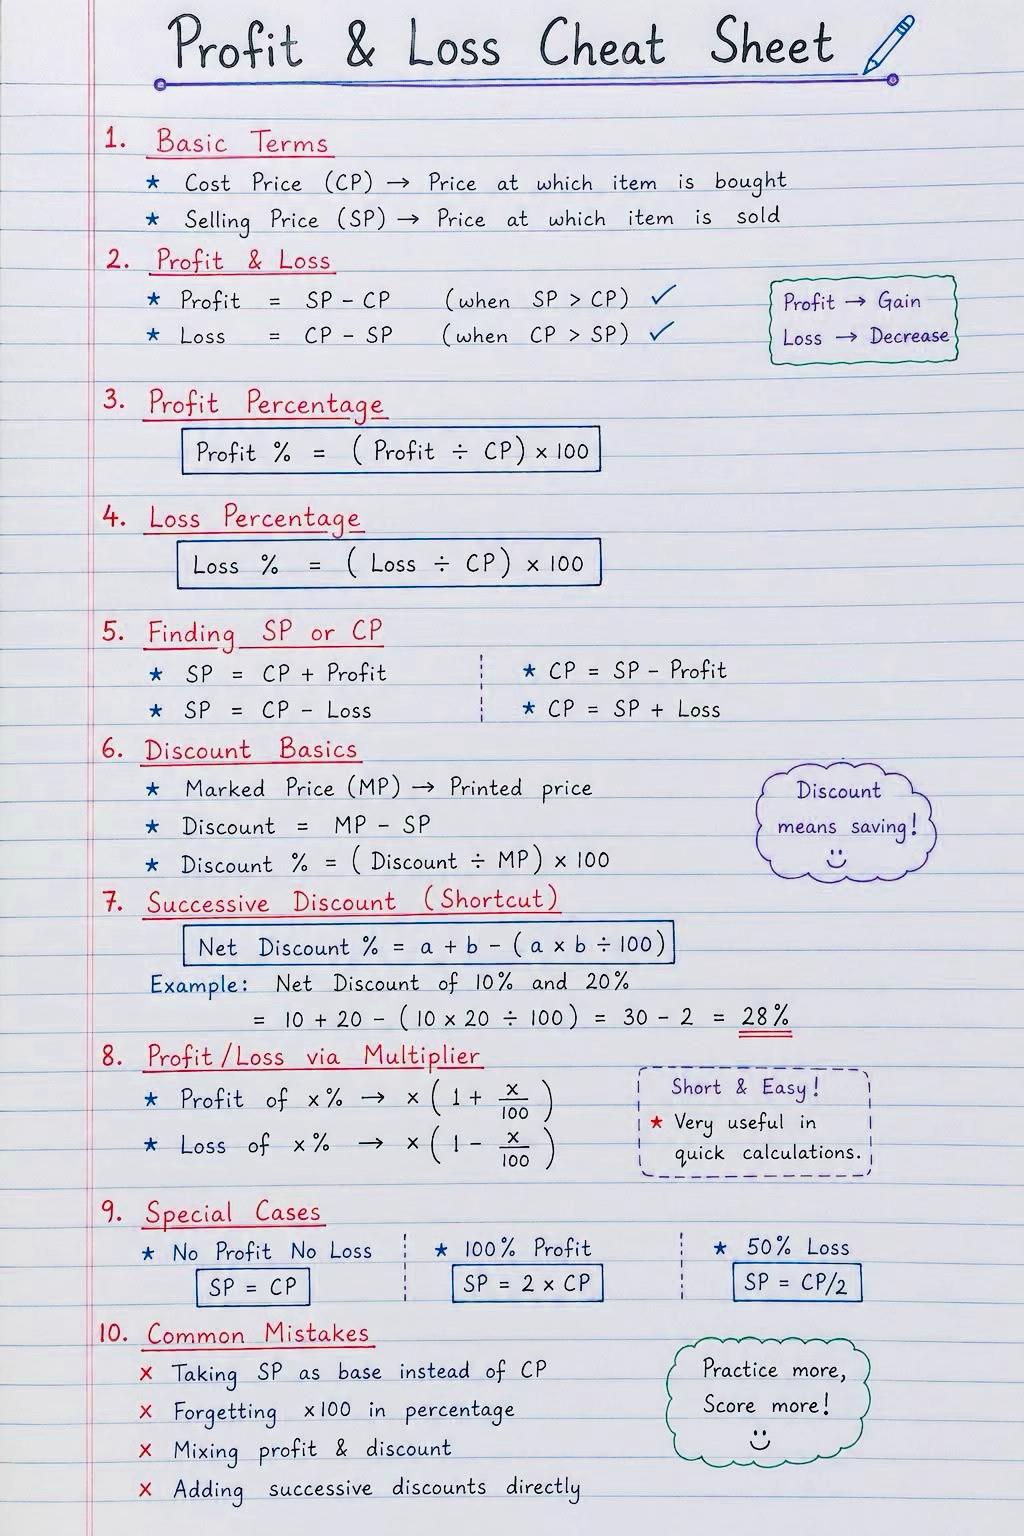 Profit & Loss Cheat Sheet
1. Basic Terms
★ Cost Price (CP) → Price at which item is bought
★ Selling Price (SP) → Price at which item is sold
2. Profit & Loss
★ Profit = SP – CP (when SP > CP) ✓
★ Loss = CP – SP (when CP > SP) ✓
Profit → Gain
Loss → Decrease
3. Profit Percentage
Profit % = ( Profit ÷ CP) × 100
4. Loss Percentage
Loss % = ( Loss ÷ CP) × 100
5. Finding SP or CP
★ SP = CP + Profit
★ SP = CP – Loss
★ CP = SP – Profit
★ CP = SP + Loss
6. Discount Basics
★ Marked Price (MP) → Printed price
★ Discount = MP – SP
★ Discount % = ( Discount ÷ MP) × 100
Discount
means saving!
7. Successive Discount (Shortcut)
Net Discount % = a + b – ( a × b ÷ 100)
Example: Net Discount of 10% and 20%
= 10 + 20 – ( 10 × 20 ÷ 100) = 30 – 2 = 28%
8. Profit/Loss via Multiplier
★ Profit of x% → × ( 1 + x/100 )
★ Loss of x% → × ( 1 – x/100 )
Short & Easy!
★ Very useful in
quick calculations.
9. Special Cases
★ No Profit No Loss
SP = CP
★ 100% Profit
SP = 2 × CP
★ 50% Loss
SP = CP/2
10. Common Mistakes
× Taking SP as base instead of CP
× Forgetting ×100 in percentage
× Mixing profit & discount
× Adding successive discounts directly
Practice more,
Score more!